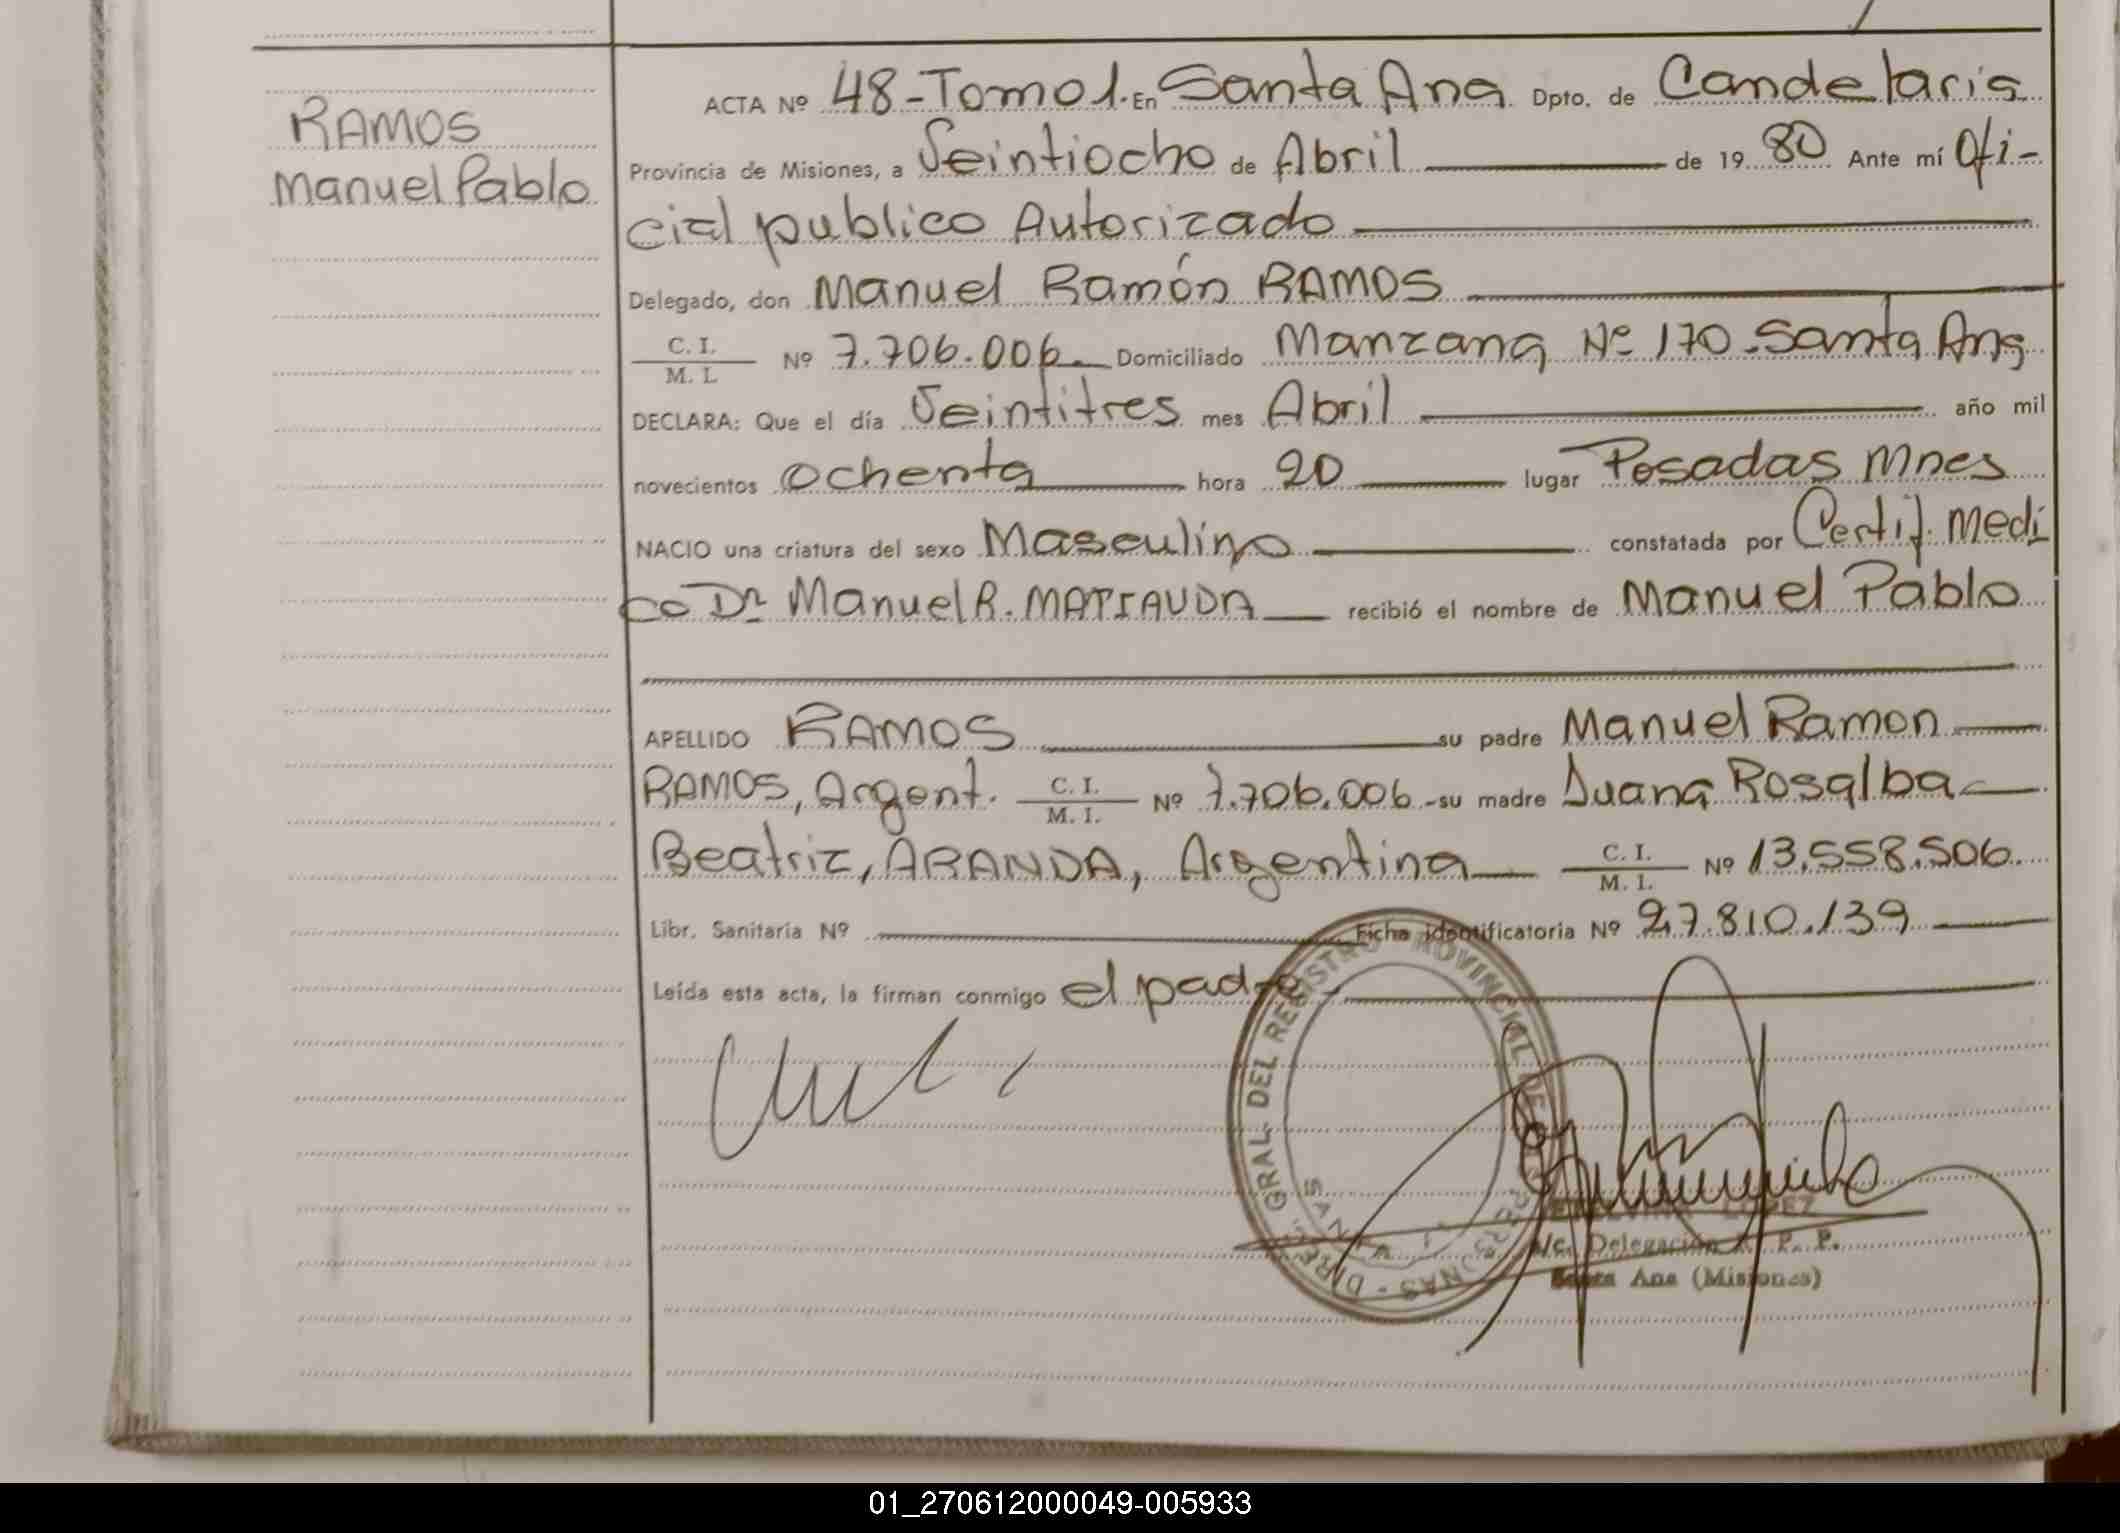 RAMOS
Manuel Pablo
ACTA Nº 48-Tomo 1. En Santa Ana Dpto. de Candelaria
Provincia de Misiones, a Veintiocho de Abril de 1980 Ante mí Ofi-
cial publico Autorizado
Delegado, don Manuel Ramón RAMOS
C. I.
M. I. Nº 7.706.006. Domiciliado Manzana Nº 170-Santa Ana
DECLARA: Que el día Veintitres mes Abril año mil
novecientos ochenta hora 20 lugar Posadas Mnes
NACIO una criatura del sexo Masculino constatada por Certif. Medi
co Dr Manuel R. MATIAUDA recibió el nombre de Manuel Pablo
APELLIDO RAMOS su padre Manuel Ramon
RAMOS, Argent. C. I. M. I. Nº 7.706.006-su madre Juana Rosalba
Beatriz, ARANDA, Argentina C. I. M. I. Nº 13.558.506.
Libr. Sanitaria Nº Ficha identificatoria Nº 27.810.139
Leída esta acta, la firman conmigo el padre
GRAL. DEL REGISTRO PROVINCIAL DE
SANTA ANA
LOPEZ
a/c. Delegación R. P. P.
Santa Ana (Misiones)
01_270612000049-005933